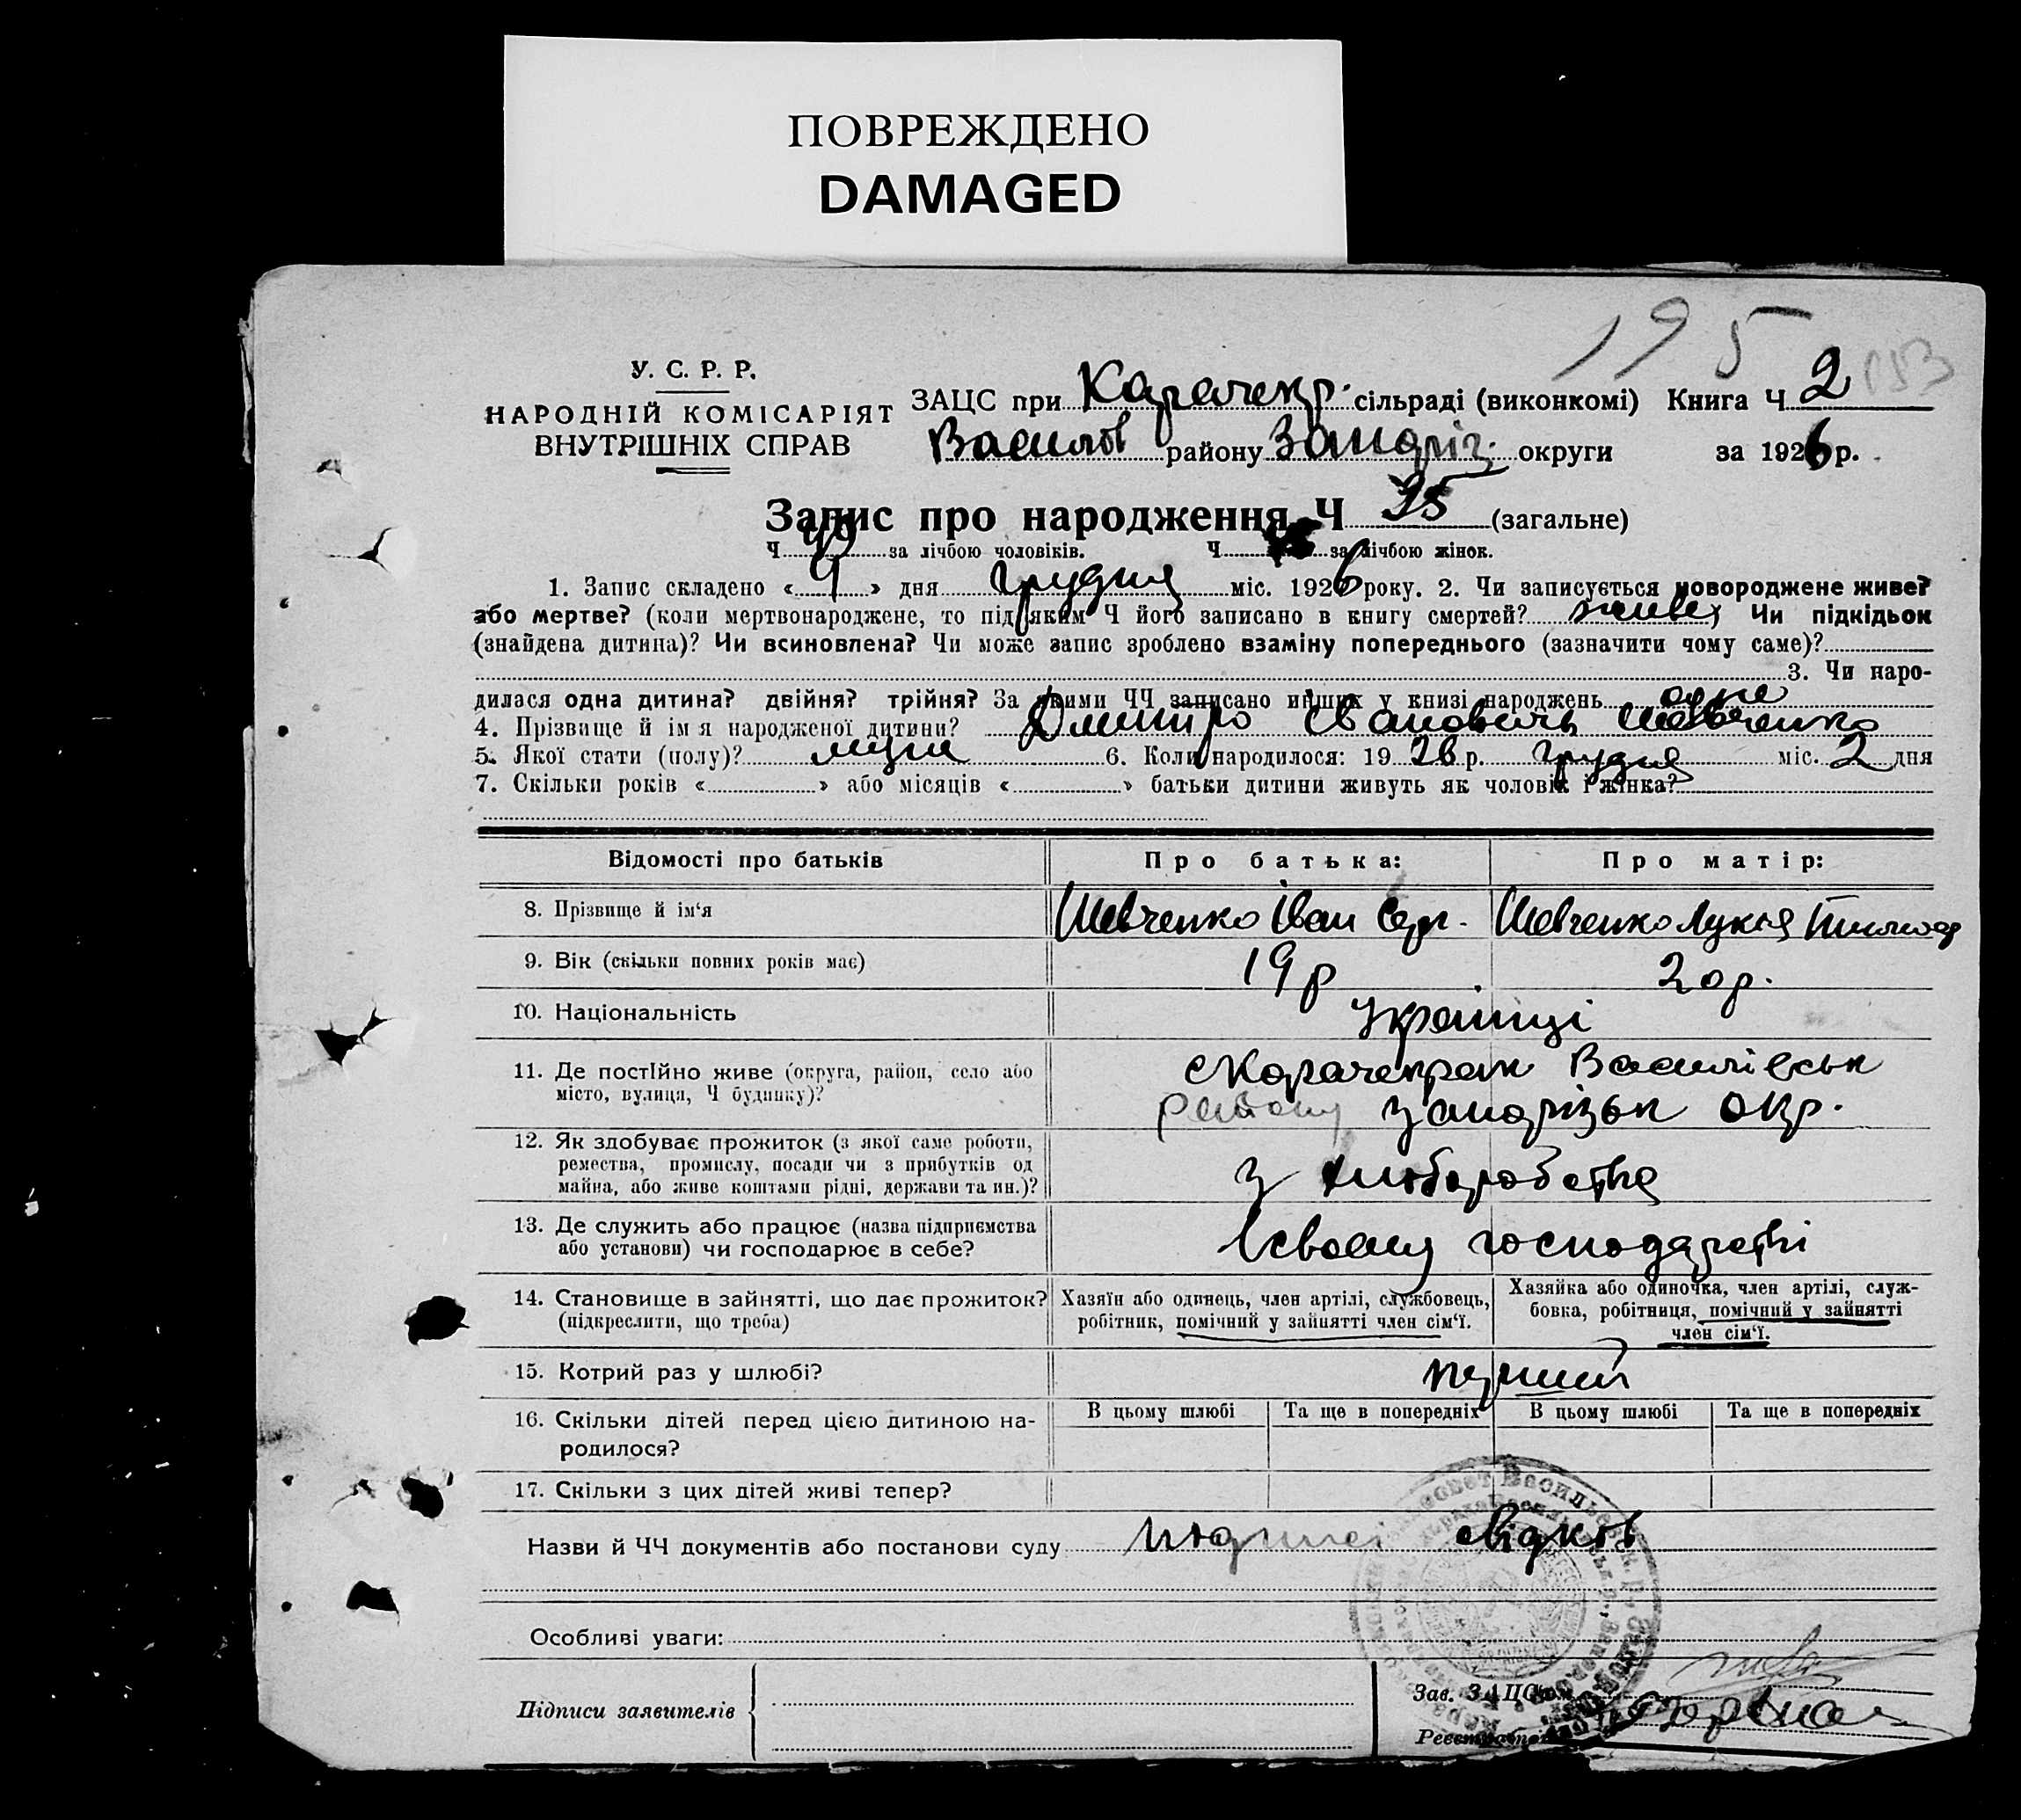 ПОВРЕЖДЕНО
DAMAGED
195
У. С. Р. Р.
НАРОДНІЙ КОМІСАРІЯТ
ВНУТРІШНІХ СПРАВ
ЗАЦС при Карачекр. сільраді (виконкомі) Книга Ч 2 153
Василів району Запоріз. округи за 1926 р.
Запис про народження Ч 95 (загальне)
Ч 49 за лічбою чоловіків. Ч за лічбою жінок.
1. Запис складено «4» дня грудня міс. 1926 року. 2. Чи записується новороджене живе?
або мертве? (коли мертвонароджене, то під яким Ч його записано в книгу смертей? живе, Чи підкідьок
(знайдена дитина)? Чи всиновлена? Чи може запис зроблено взаміну попереднього (зазначити чому саме)?
3. Чи наро-
дилася одна дитина? двійня? трійня? За якими ЧЧ записано инших у книзі народжень одне
4. Прізвище й ім я народженої дитини? Дмитро Іванович Шевченко
5. Якої стати (полу)? муж 6. Коли народилося: 1926 р. грудня міс. 2 дня
7. Скільки років « » або місяців « » батьки дитини живуть як чоловік і жінка?
Відомості про батьків Про батька: Про матір:
8. Прізвище й ім‘я Шевченко Іван Серг. Шевченко Лукія Тимох
9. Вік (скільки повних років має) 19 р 20 р.
10. Національність Українці
11. Де постійно живе (округа, район, село або
місто, вулиця, Ч будинку)?
с Карачекрак Василівськ
району Запорізьк окр.
12. Як здобуває прожиток (з якої саме роботи,
ремества, промислу, посади чи з прибутків од
майна, або живе коштами рідні, держави та ин.)?
з хліборобства
13. Де служить або працює (назва підприємства
або установи) чи господарює в себе?
В своему господарстві
14. Становище в зайнятті, що дає прожиток?
(підкреслити, що треба)
Хазяїн або одинець, член артілі, службовець,
робітник, помічний у зайнятті член сім‘ї.
Хазяйка або одиночка, член артілі, служ-
бовка, робітниця, помічний у зайнятті
член сім‘ї.
15. Котрий раз у шлюбі? перший
16. Скільки дітей перед цією дитиною на-
родилося?
В цьому шлюбі Та ще в попередніх В цьому шлюбі Та ще в попередніх
17. Скільки з цих дітей живі тепер?
Назви й ЧЧ документів або постанови суду свідків
Особливі уваги:
Підписи заявителів
Зав. ЗАЦСом
Реєстратор